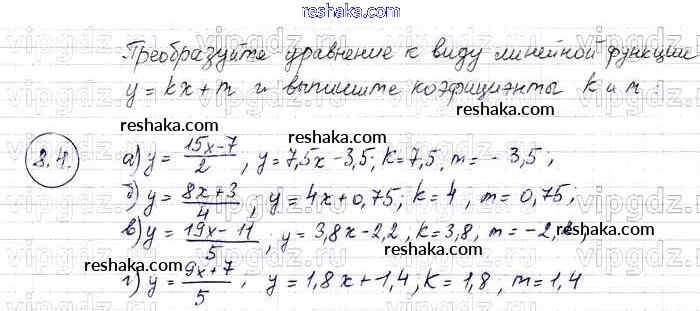 reshaka.com
Преобразуйте уравнение к виду линейной функции
y = kx + m и выпишите коэфициенты k и m.
reshaka.com reshaka.com
8.4. а) y = (15x-7)/2, y = 7,5x - 3,5; k = 7,5, m = - 3,5;
reshaka.com
б) y = (8x+3)/4, y = 4x + 0,75; k = 4, m = 0,75;
reshaka.com
в) y = (19x-11)/5; y = 3,8x - 2,2, k = 3,8, m = -2,2;
reshaka.com reshaka.com
г) y = (9x+7)/5; y = 1,8x + 1,4, k = 1,8, m = 1,4
reshaka.com